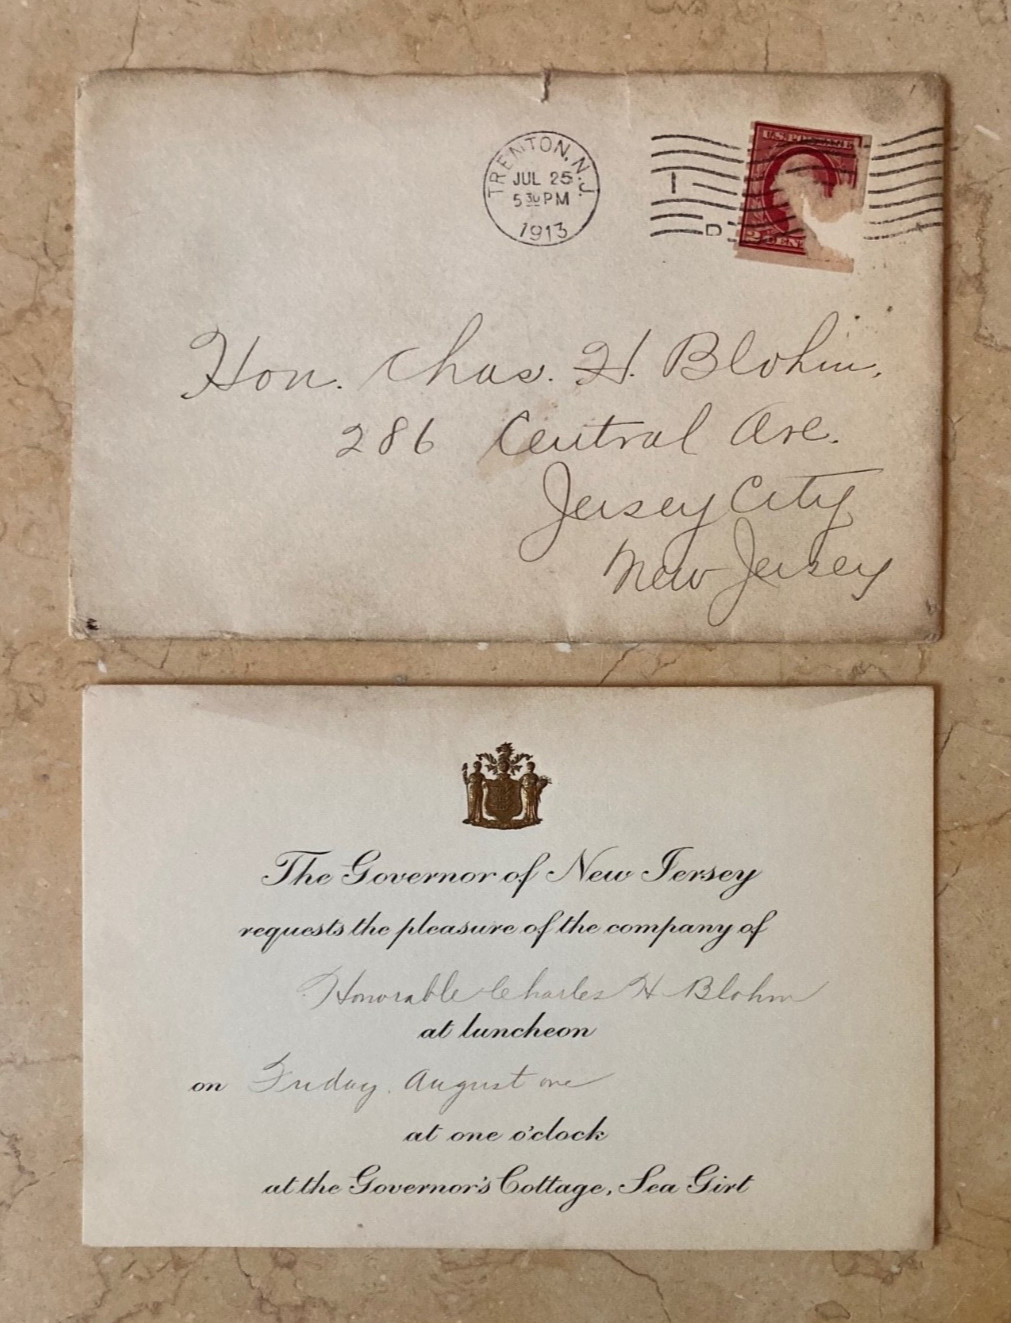 TRENTON, N.J.
JUL 25
5 30 PM
1913
U.S. POSTAGE
2 CEN
I
D
Hon. Chas. H. Blohm.
286 Central Ave.
Jersey City
New Jersey
The Governor of New Jersey
requests the pleasure of the company of
Honorable Charles H Blohm
at luncheon
on Friday, August one
at one o'clock
at the Governor's Cottage, Sea Girt